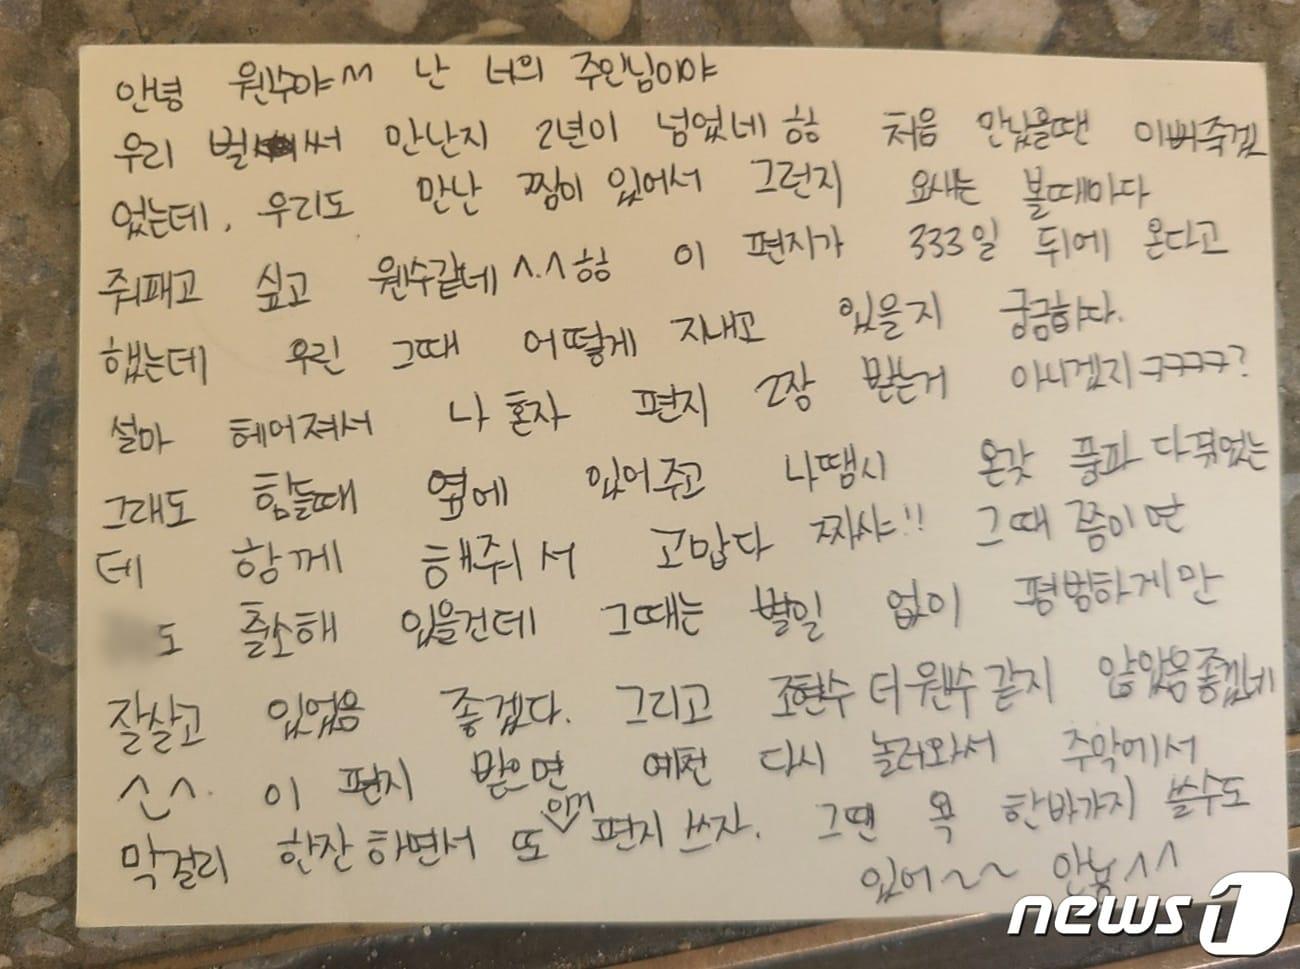 안녕 원수야^^ 난 너의 주인님이야
우리 벌써 만난지 2년이 넘었네 ㅎㅎ 처음 만났을땐 이뻐죽겠
었는데, 우리도 만난 찜이 있어서 그런지 요새는 볼때마다
줘패고 싶고 웬수같네 ^.^ㅎㅎ 이 편지가 333일 뒤에 온다고
했는데 우린 그때 어떻게 지내고 있을지 궁금하다.
설마 헤어져서 나 혼자 편지 2장 받는거 아니겠지ㅋㅋㅋㅋ?
그래도 힘들때 옆에 있어주고 나땜시 온갖 풍파 다 겪었는
데 함께 해줘서 고맙다 짜샤!! 그때쯤이면
도 출소해 있을건데 그때는 별일 없이 평범하게만
잘살고 있었음 좋겠다. 그리고 조현수 더 웬수같지 않았음좋겠네
^^. 이 편지 받으면 예천 다시 놀러와서 주막에서
막걸리 한잔하면서 또 이거 편지 쓰자. 그땐 욕 한바가지 쓸수도
있어~~ 안뇽^^
news1